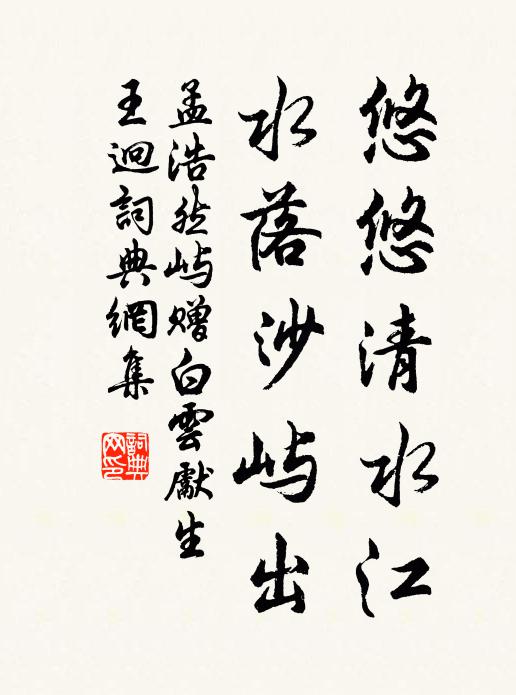 悠悠清水江
水落沙屿出
孟浩然屿赠白雲獻生
王迥詞典網集
詞典网印